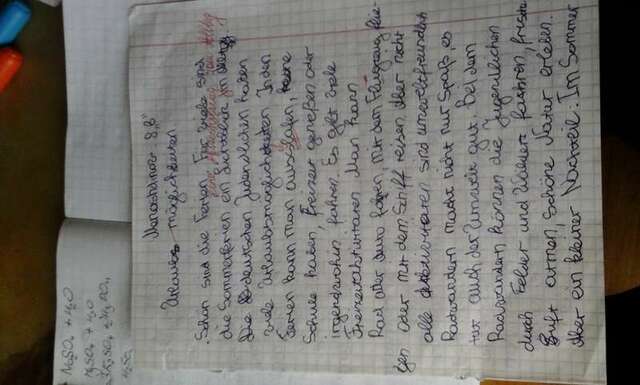 Hausarbeit 8,6"
Urlaubsmöglichkeiten
Schön sind die Ferien. Für viele sind
die Sommerferien ein
Die deutschen Jugendlichen haben
viele Urlaubsmöglichkeiten. In den
Ferien kann man ausschlafen, keine
Schule haben, Freizeit genießen oder
irgendwohin fahren. Es gibt viele
Man kann
Rad oder Auto fahren, mit dem Flugzeug flie-
gen oder mit dem Schiff reisen. Aber nicht
alle sind umweltfreundlich
Radwandern macht nicht nur Spaß, es
tut auch der Umwelt gut. Bei dem
Radwandern können die Jugendlichen
durch Felder und Wälder fahren, frische
Luft atmen, schöne Natur erleben.
Aber ein kleiner Nachteil: Im Sommer
Na₂SO₄ + H₂O
H₂SO₄